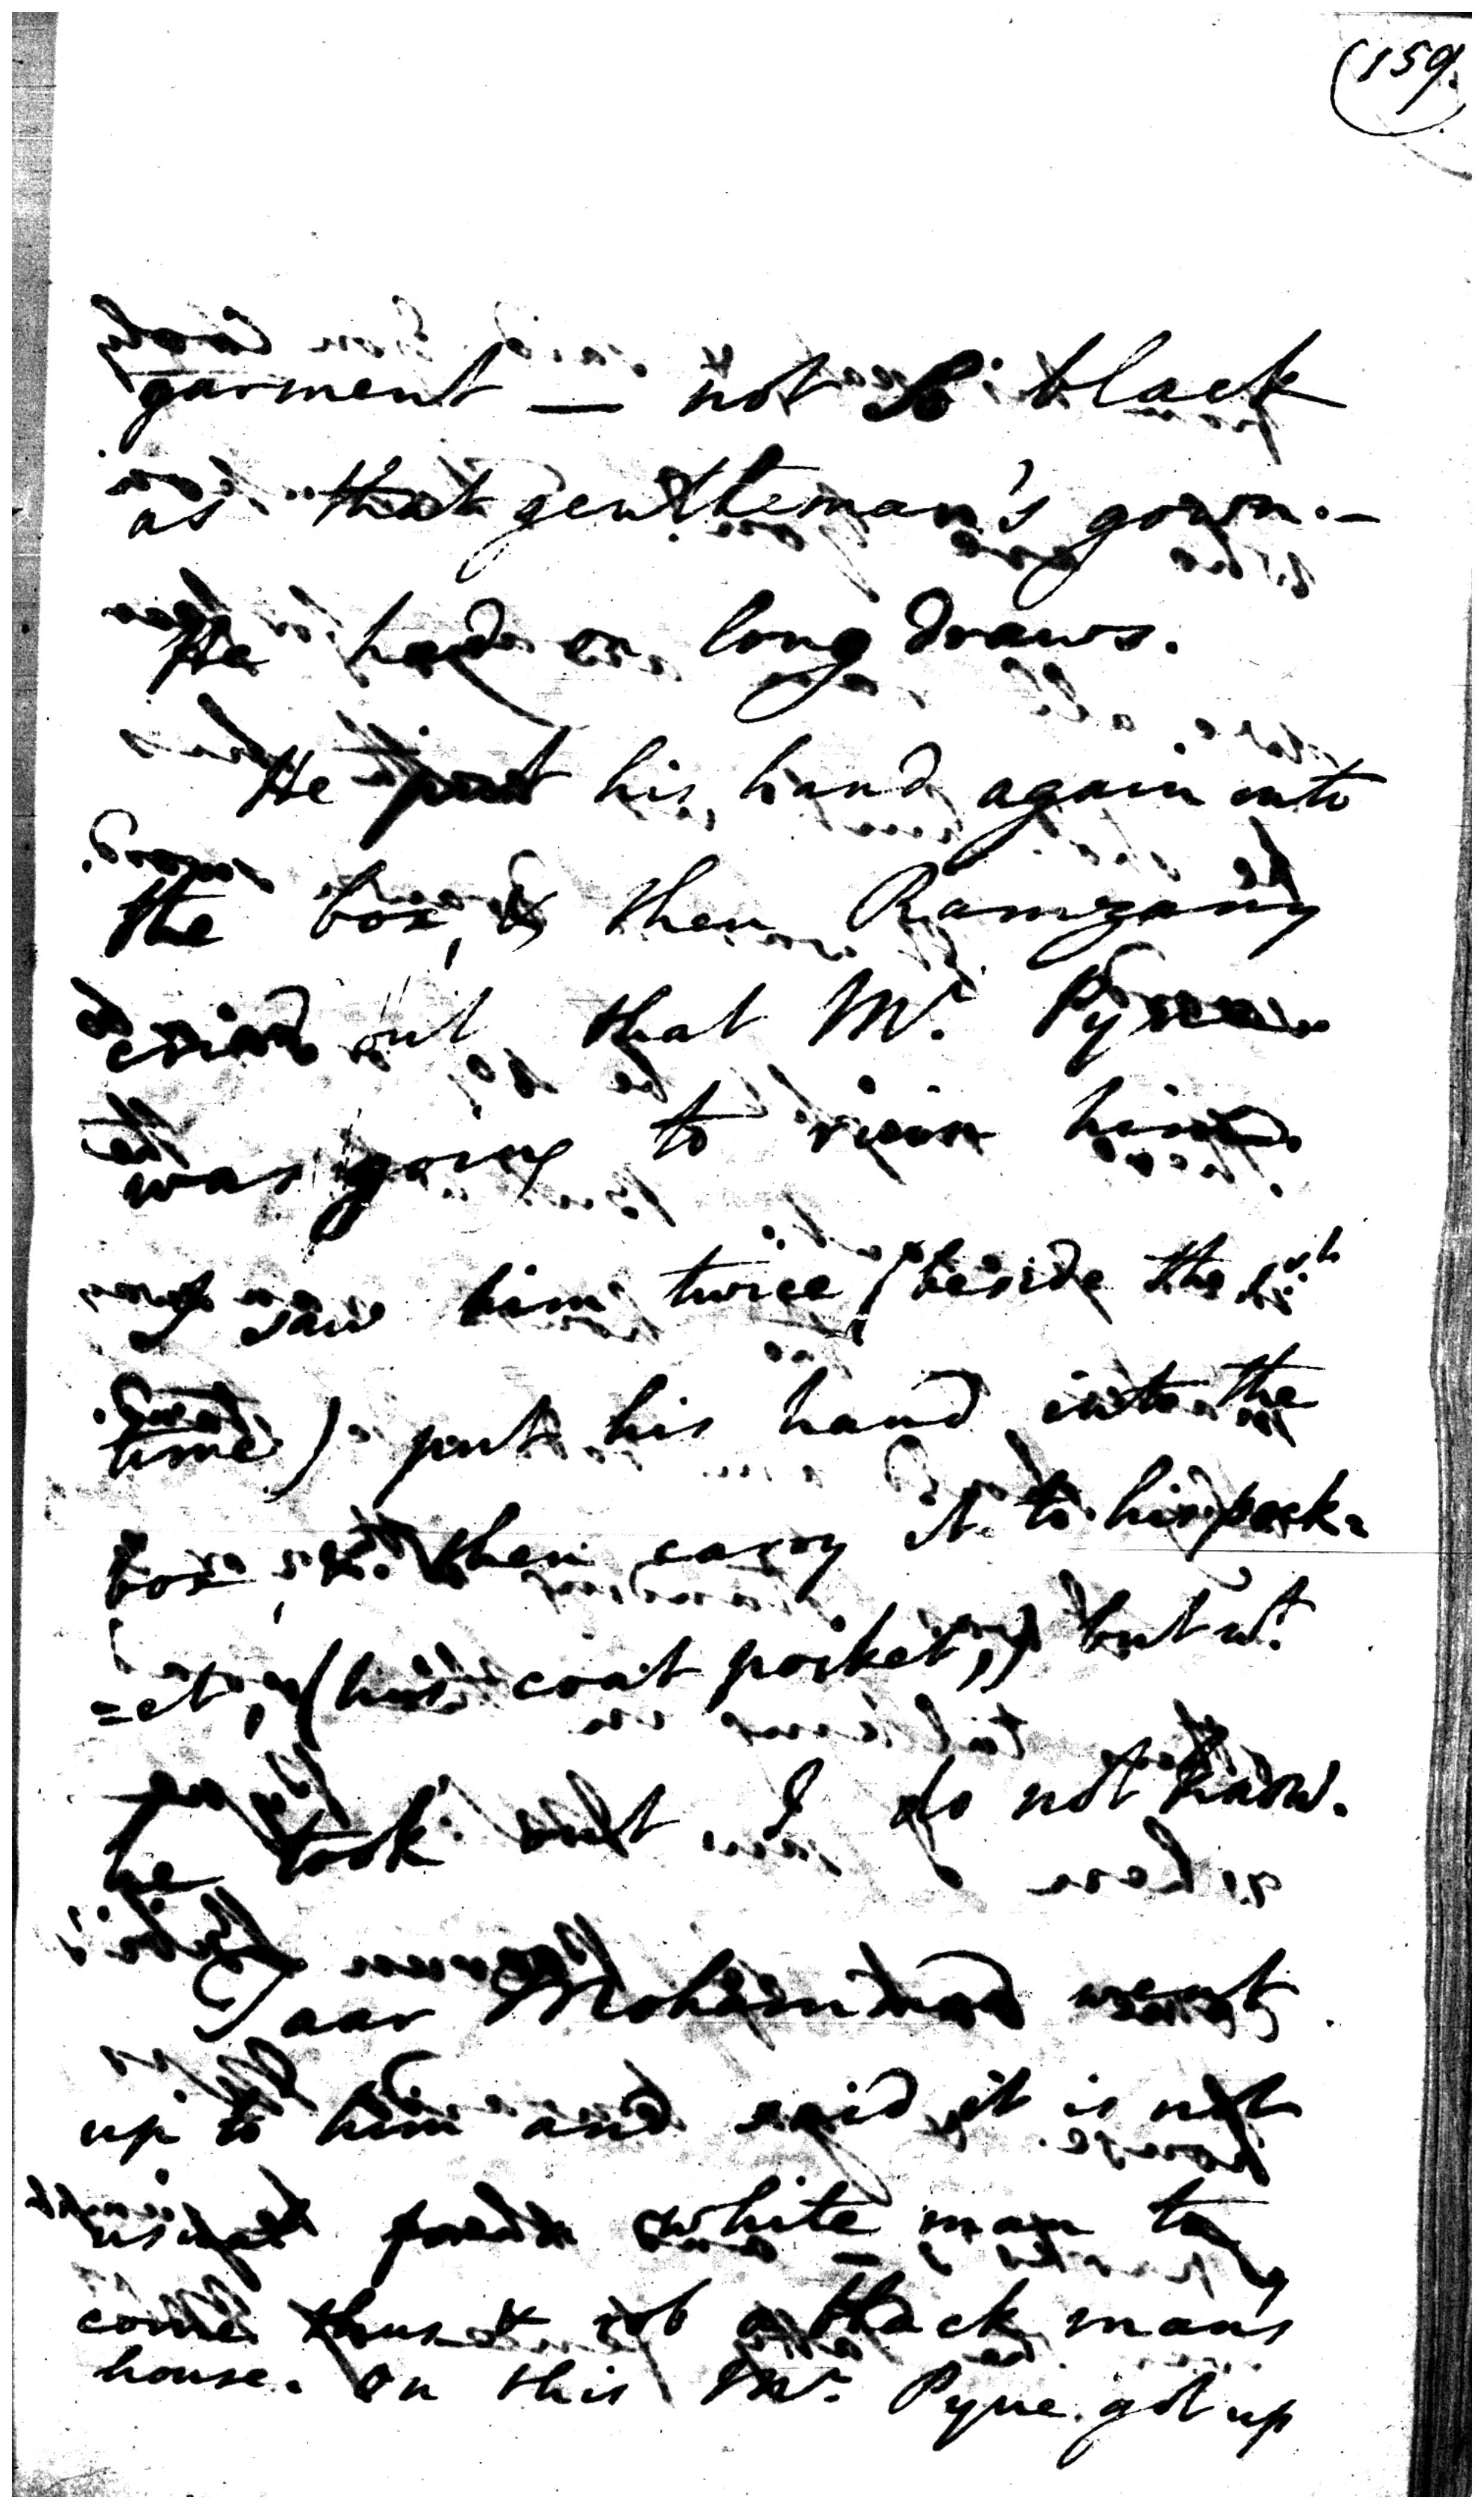 (159.
garment — not so black
as that gentleman's gown. —
He had on long draws.
He put his hand again into
the box, & then Ramzany
cried out that Mr. Pyne
was going to ruin him.
I saw him twice (beside the 1st
time) put his hand into the
box, & then carry it to his pock=
=et, (his coat pocket,) but wt.
he took out I do not know.
Jaar Mohammad went
up to him and said it is not
usual for a white man to
come thus & rob a black man's
house. On this Mr. Pyne got up